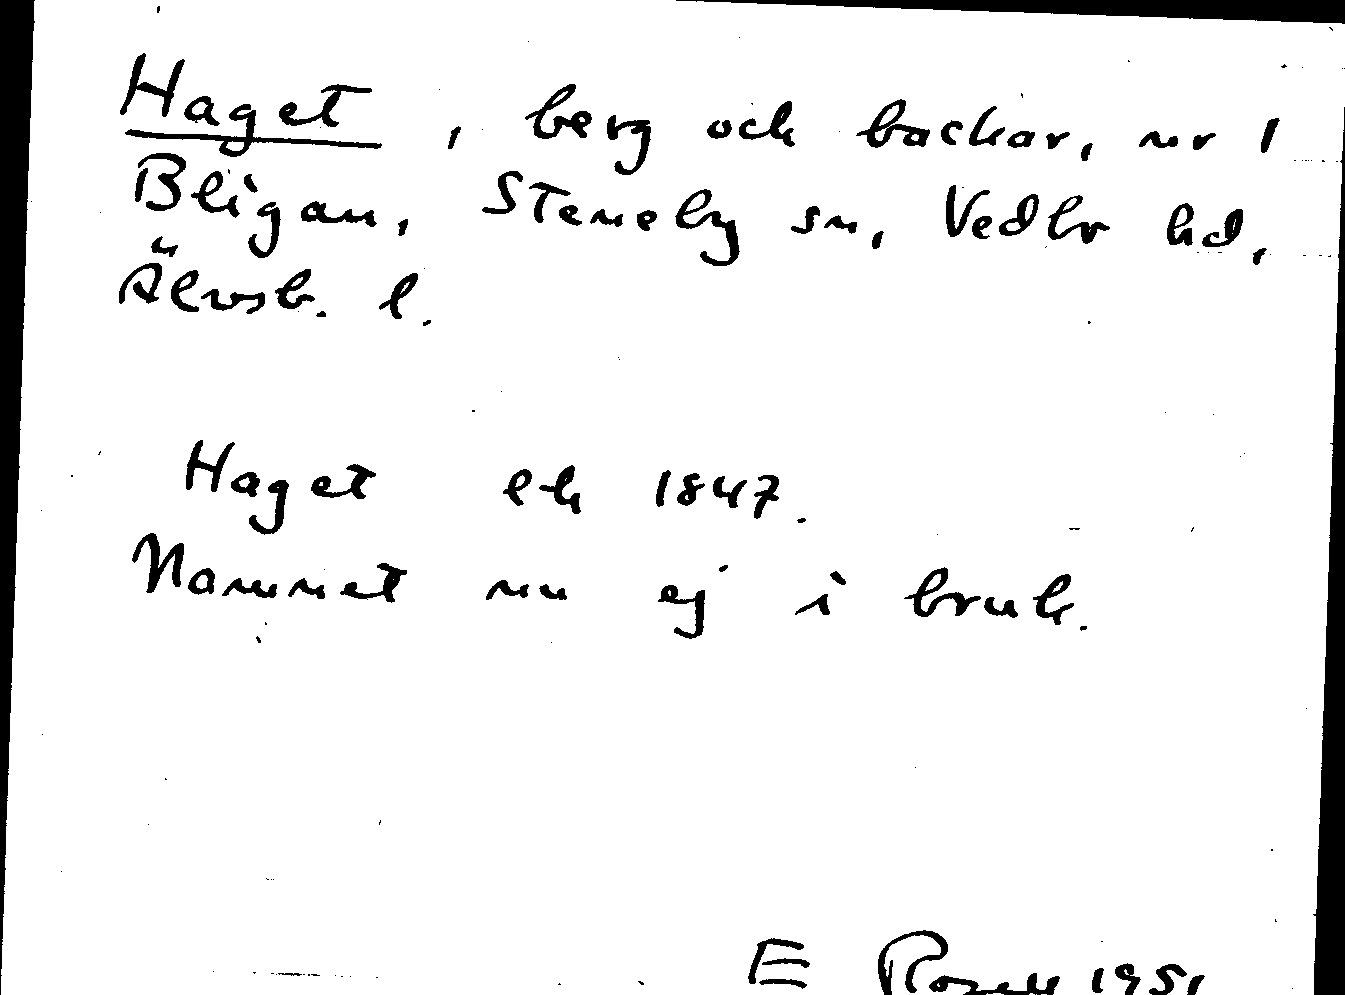 Haget, berg och backar, nr 1
Bligan, Steneby sn, Vedbo hd,
Älvsb. l.
Haget ek 1847.
Namnet nu ej i bruk.
E Rosell 1951